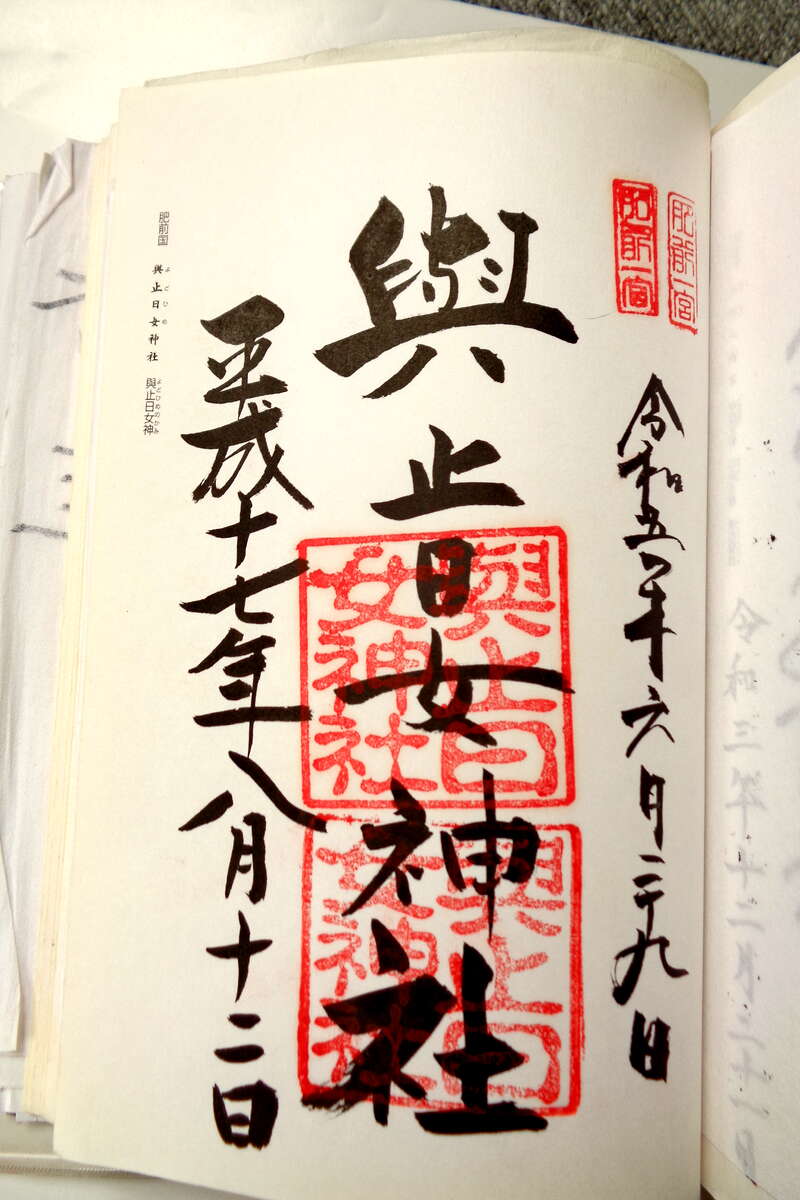 肥前一宮
肥前一宮
令和五年六月二十九日
與止日女神社
與止日女神社
與止日女神社
平成十七年八月十二日
肥前国 與止日女神社 與止日女神
よどひめ
よどひめのかみ
令和三年十二月三十一日